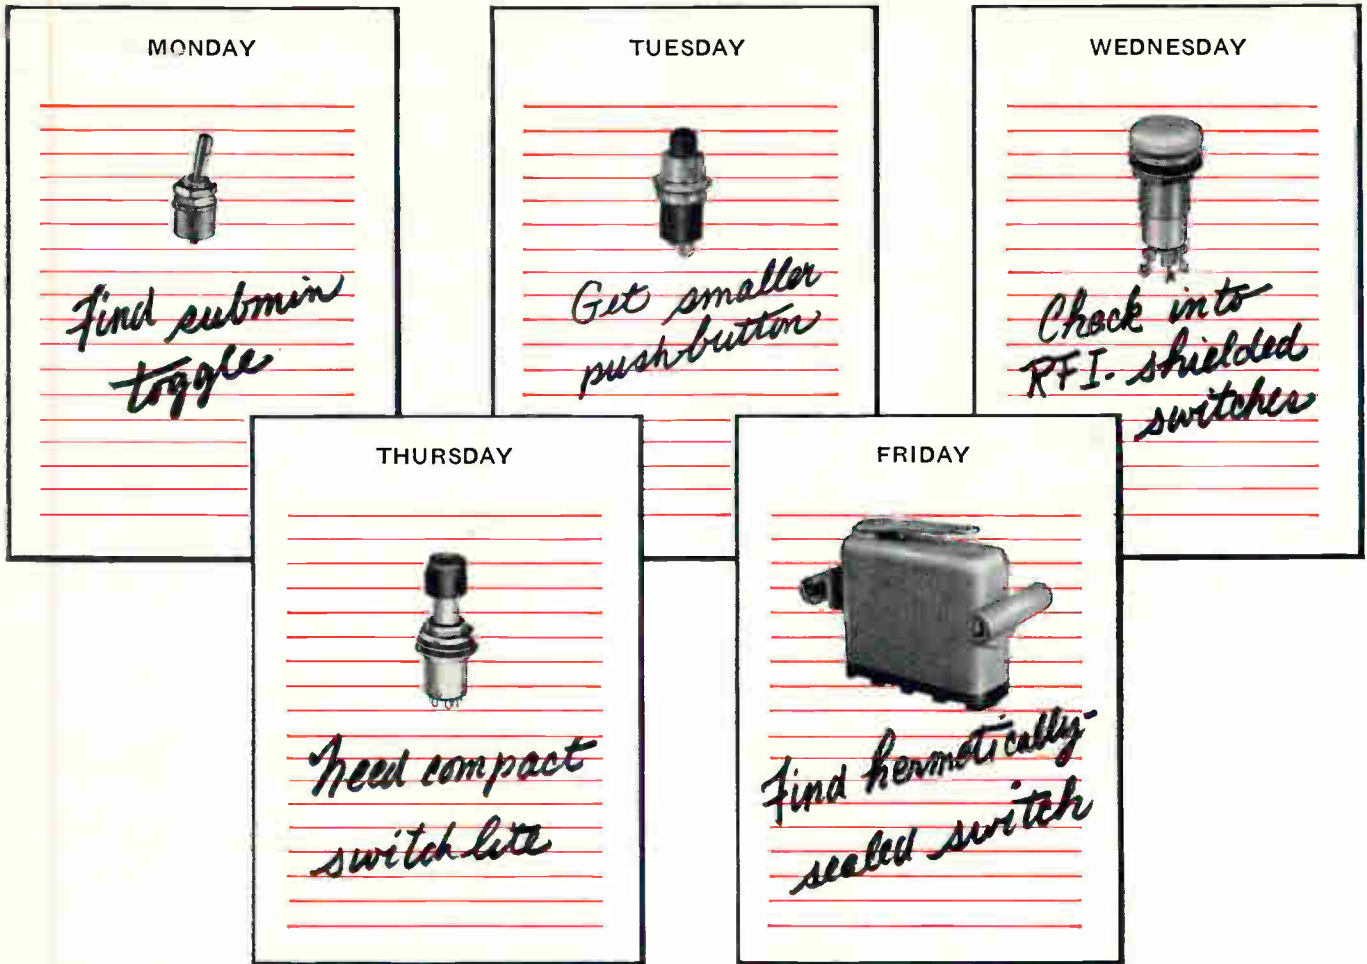 MONDAY
Find submin
toggle
TUESDAY
Get smaller
pushbutton
WEDNESDAY
Check into
RFI. shielded
switches
THURSDAY
Need compact
switch lite
FRIDAY
Find hermetically-
sealed switch